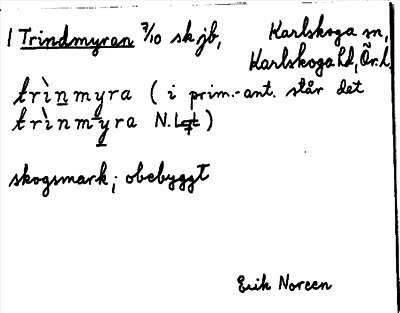 1 Trindmyran 7/10 sk jb, Karlskoga sn,
Karlskoga hd, Ör. l.
trìnmyra ( i prim.-ant. står det
trìnmyra N. )
skogsmark; obebyggt
Erik Noreen